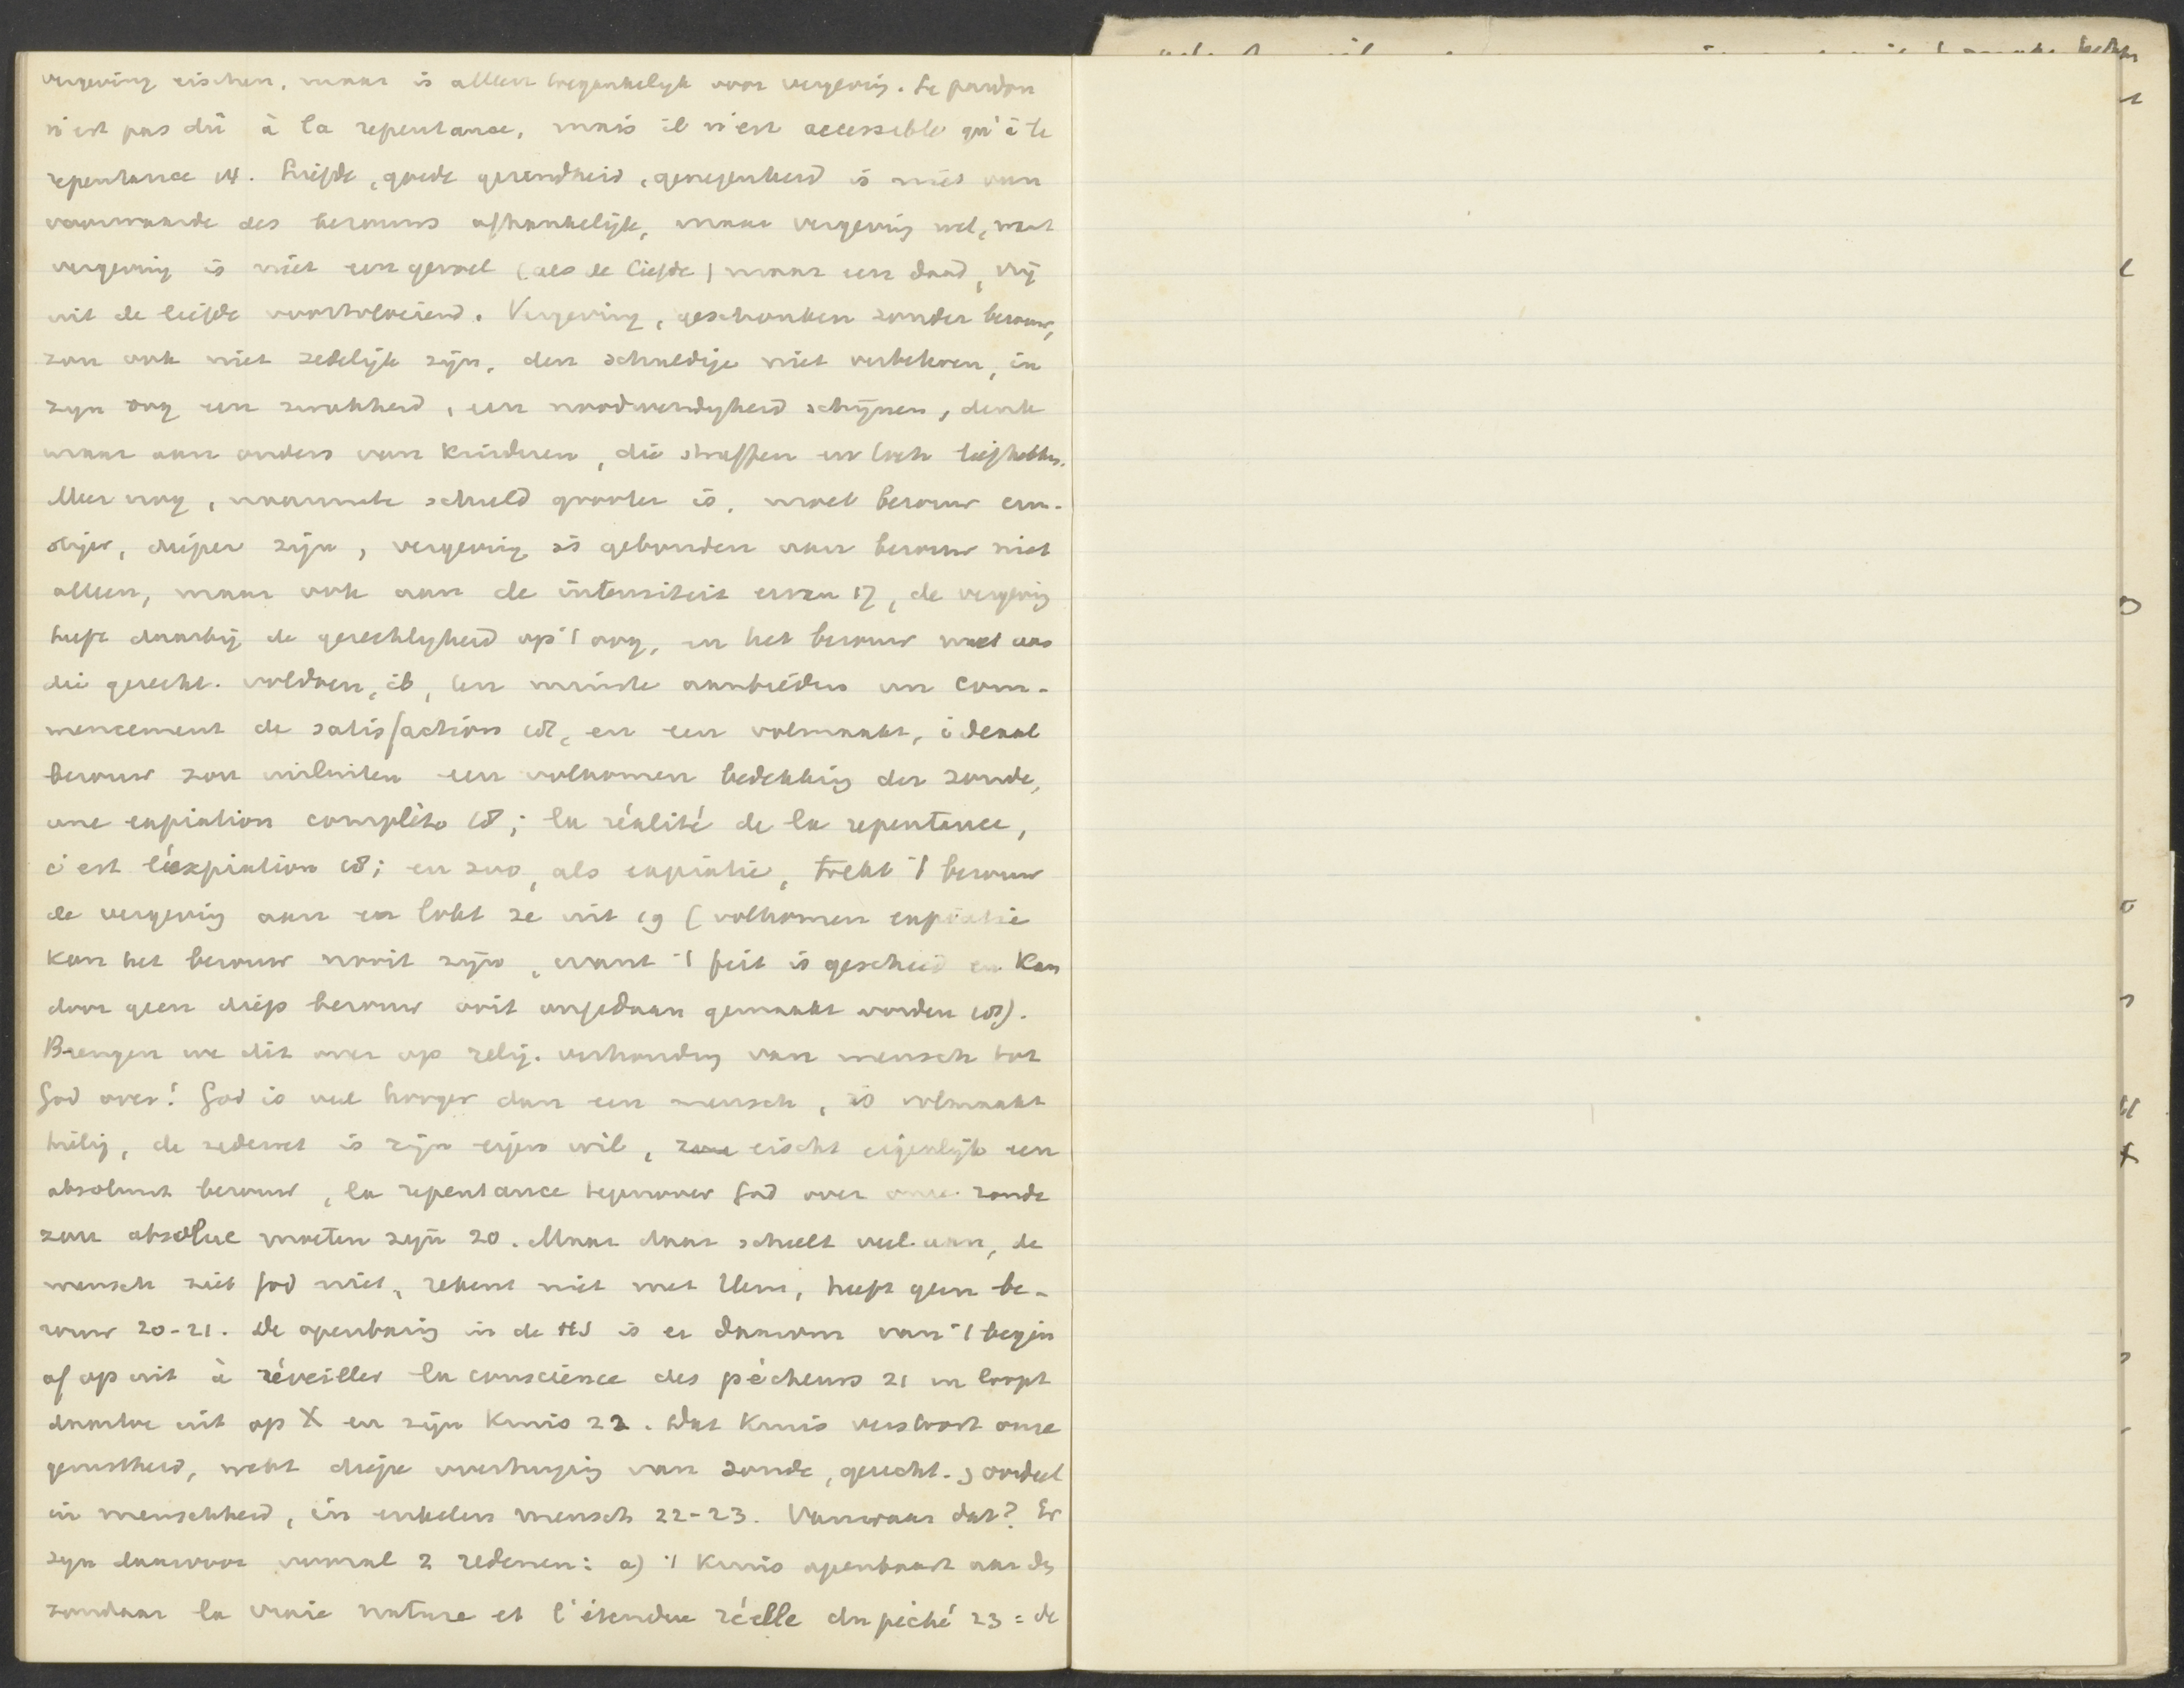 vergeving eischen, maar is alleen toegankelijk voor vergevig. Le pardon
n'est pas dû à la repentance, mais il n'est accessible qu'à la
repentance 14. Liefde, goede gezindheid, genegenheid is niet van
voorwaarde des berouws afhankelijk, maar vergevig wel, want
vergevig is niet een gevoel (als de liefde) maar een daad, vrij
uit de liefde voortvloeiend. Vergeving, geschonken zonder berouw,
zou ook niet zedelijk zijn, den schuldige niet verbeteren, in
zijn oog een zwakheid, een noodwendigheid schijnen, denk
maar aan ouders van kinderen, die straffen en toch liefhebben.
Meer nog, naarmate schuld grooter is, moet berouw ern-
stiger, dieper zijn, vergevig is gebonden aan berouw niet
alleen, maar ook aan de intensiteit ervan 17, de vergevig
heeft daarbij de gerechtigheid op 't oog, en het berouw moet aan
die gerecht. voldoen, ib, ten minste aanbieden un com-
mencement de satisfaction 18, en een volmaakt, ideaal
berouw zou insluiten een volkomen bedekkig der zonde,
une expiation complète 18; la réalité de la repentance,
c'est l'expiation 18; en zoo, als expiatie, trekt 't berouw
de vergevig aan en lokt ze uit 19 (volkomen expiatie
kan het berouw nooit zijn, want 't feit is geschied en kan
door geen diep berouw ooit ongedaan gemaakt worden 18).
Brengen we dit over op relig. verhoudig van mensch tot
God over! God is veel hooger dan een mensch, is volmaakt
heilig, de zedewet is zijn eigen wil, eischt eigenlijk een
absoluut berouw, la repentance tegenover God over onze zonde
zou absolue moeten zijn 20. Maar daar scheelt veel aan, de
mensch ziet God niet, rekent niet met Hem, heeft geen be-
rouw 20-21. De openbarig in de HS is er daarom van 't begin
af op uit à réveiller la conscience des pécheurs 21 en loopt
daartoe uit op X en zijn Kruis 22. Dat Kruis verstoort onze
gerustheid, wekt diepe overtuigig van zonde, gerecht., oordeel
in menschheid, in enkelen mensch 22-23. Vanwaar dat? Er
zijn daarvoor vooral 2 redenen: a) 't Kruis openbaart aan den
zondaar la vraie nature et l'étendue réelle du péché 23 = de